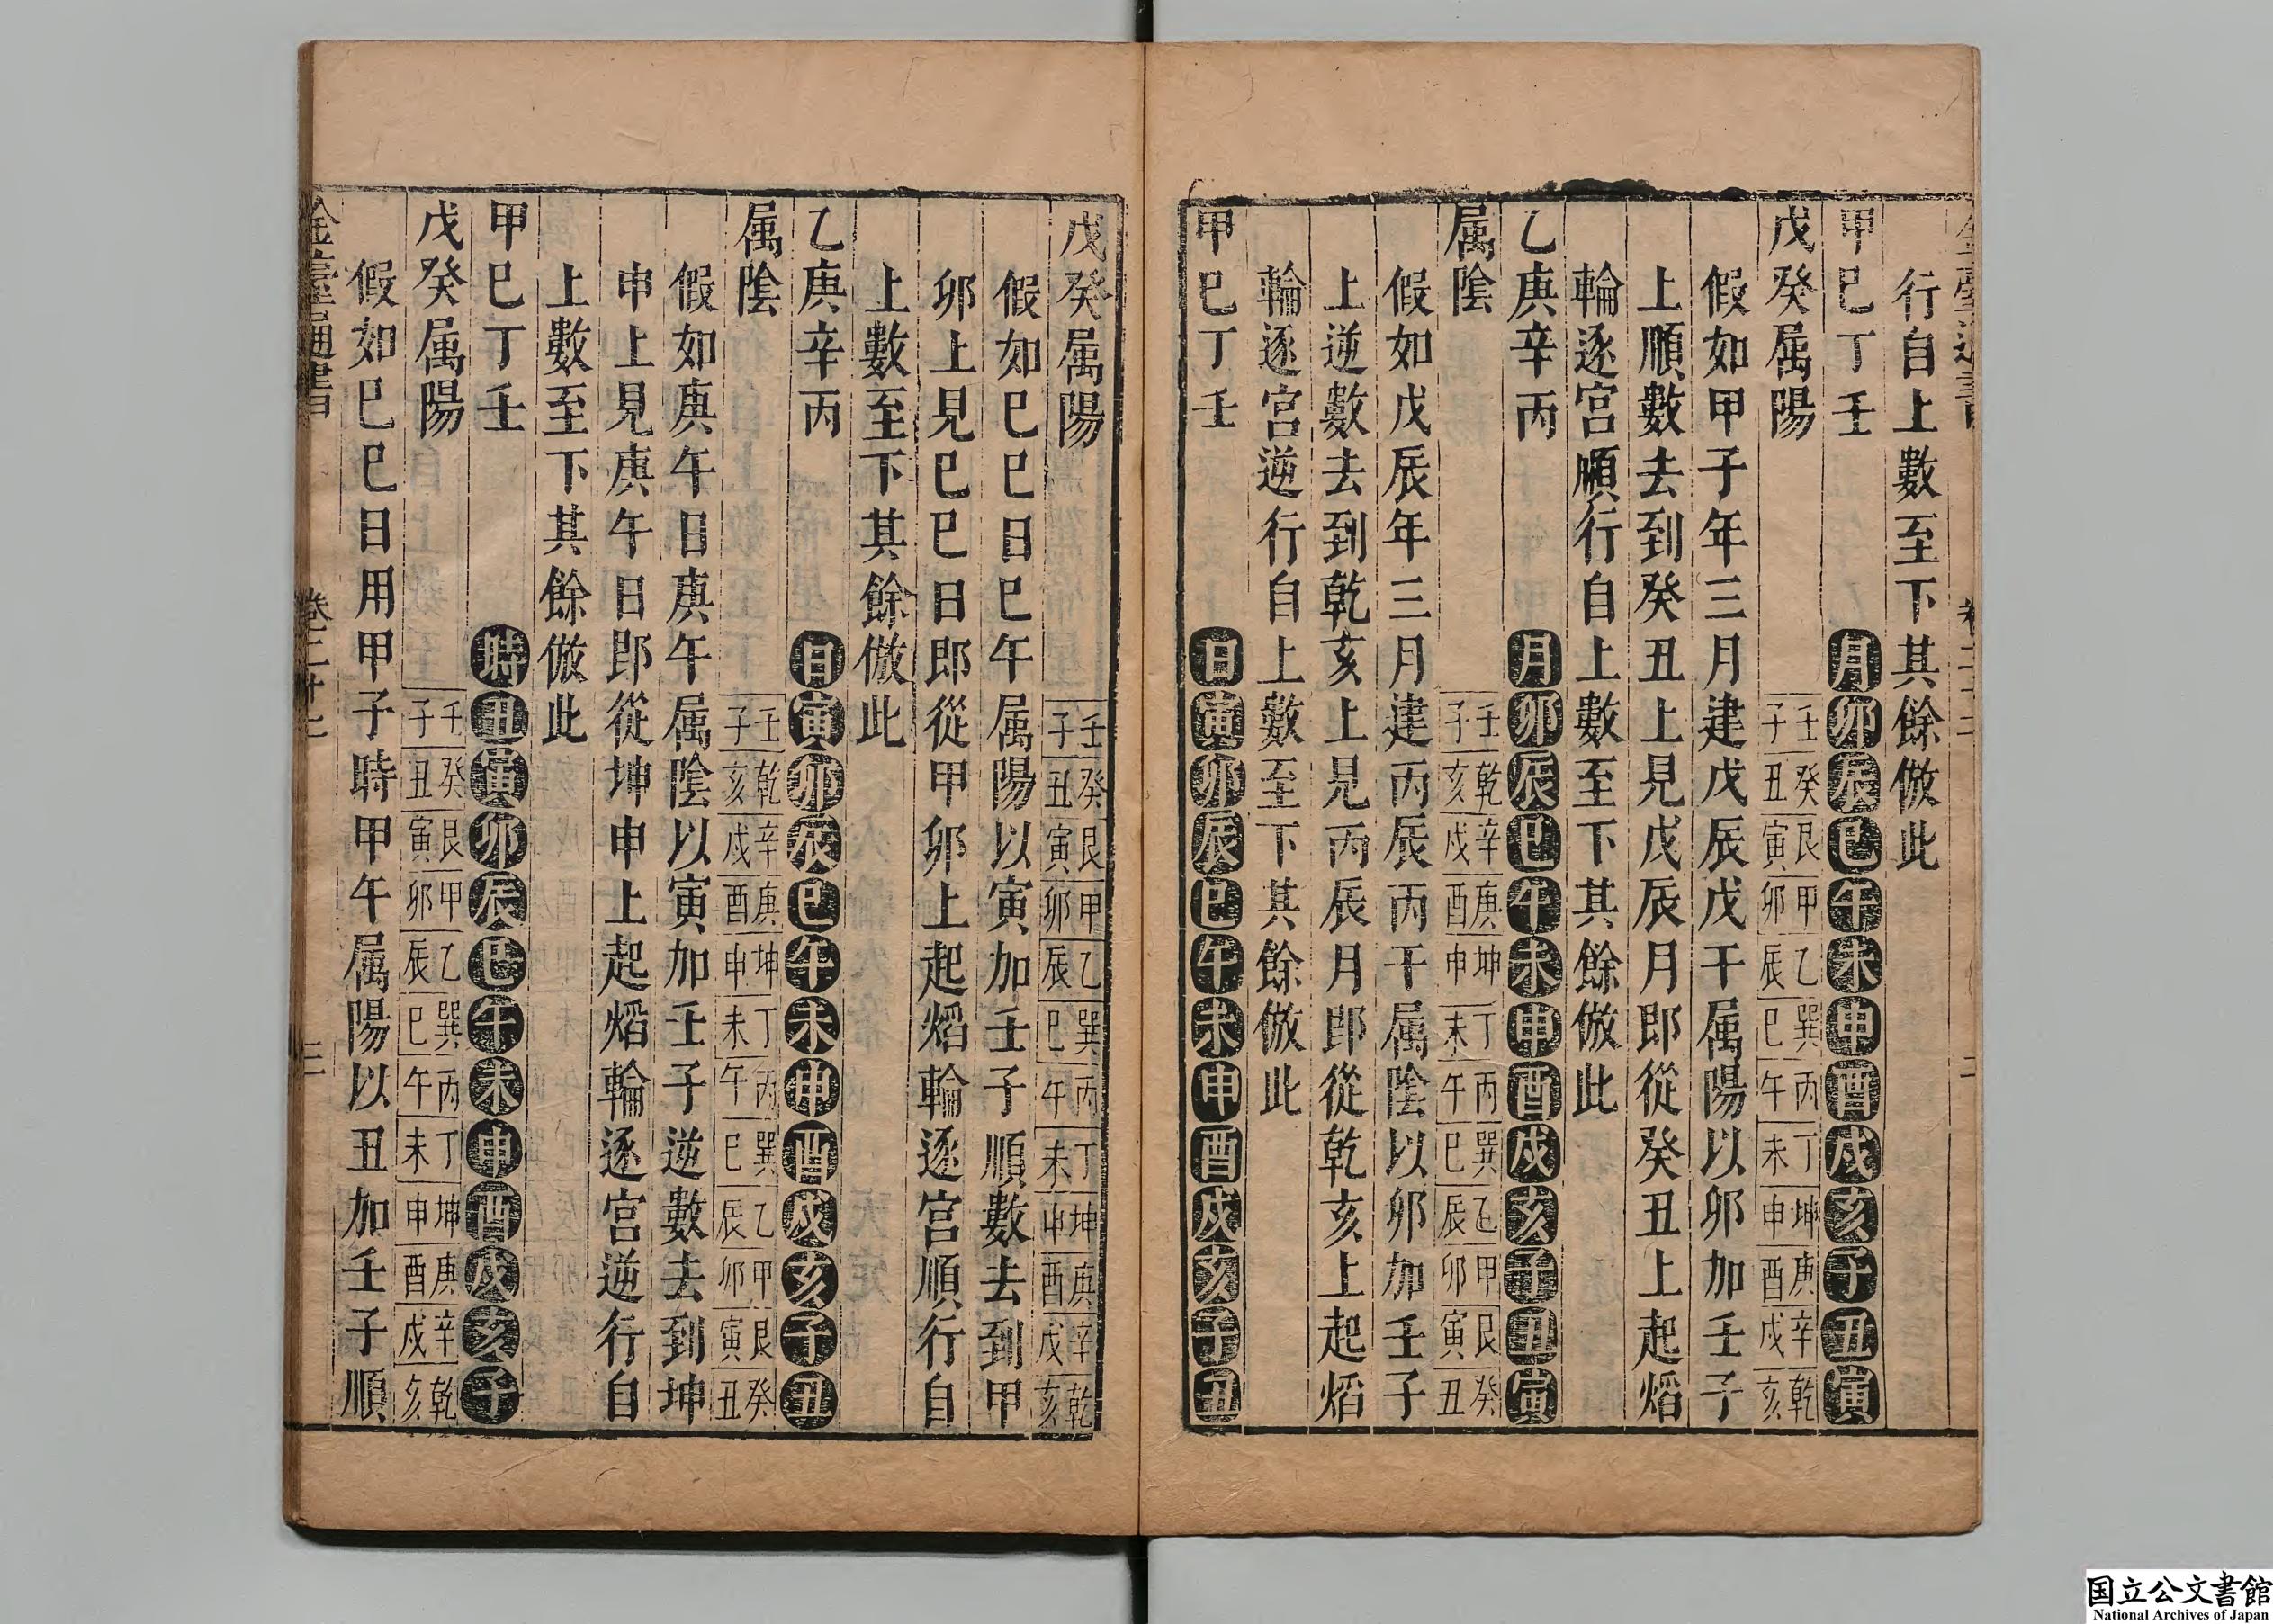 行自上數至下其餘倣此
甲巳丁壬 月卯辰巳午未申酉戌亥子丑寅
戊癸属陽 壬子 癸丑 艮寅 甲卯 乙辰 巽巳 丙午 丁未 坤申 庚酉 辛戌 乾亥
假如甲子年三月建戊辰戊干属陽以卯加壬子
上順數去到癸丑上見戊辰月即從癸丑上起熖
輪逐宮順行自上數至下其餘倣此
乙庚辛丙 月卯辰巳午未申酉戌亥子丑寅
属陰 壬子 乾亥 辛戌 庚酉 坤申 丁未 丙午 巽巳 乙辰 甲卯 艮寅 癸丑
假如戊辰年三月建丙辰丙干属陰以卯加壬子
上逆數去到乾亥上見丙辰月即從乾亥上起熖
輪逐宮逆行自上數至下其餘倣此
甲巳丁壬 日寅卯辰巳午未申酉戌亥子丑
戊癸属陽 壬子 癸丑 艮寅 甲卯 乙辰 巽巳 丙午 丁未 坤申 庚酉 辛戌 乾亥
假如巳巳日巳午属陽以寅加壬子順數去到甲
卯上見巳巳日即從甲卯上起熖輪逐宮順行自
上數至下其餘倣此
乙庚辛丙 日寅卯辰巳午未申酉戌亥子丑
属陰 壬子 乾亥 辛戌 庚酉 坤申 丁未 丙午 巽巳 乙辰 甲卯 艮寅 癸丑
假如庚午日庚午属陰以寅加壬子逆數去到坤
申上見庚午日即從坤申上起熖輪逐宮逆行自
上數至下其餘倣此
甲巳丁壬 時丑寅卯辰巳午未申酉戌亥子
戊癸属陽 壬子 癸丑 艮寅 甲卯 乙辰 巽巳 丙午 丁未 坤申 庚酉 辛戌 乾亥
假如巳巳日用甲子時甲午属陽以丑加壬子順
国立公文書館
National Archives of Japan